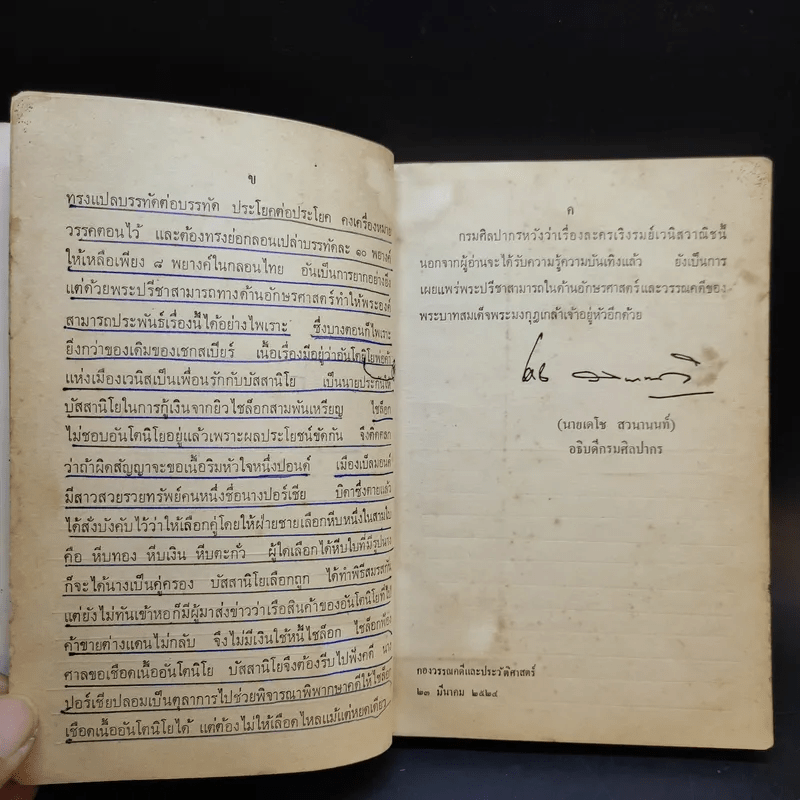 ข
ทรงแปลบรรทัดต่อบรรทัด ประโยคต่อประโยค คงเครื่องหมาย
วรรคตอนไว้ และต้องทรงย่อกลอนเปล่าบรรทัดละ ๑๐ พยางค์
ให้เหลือเพียง ๘ พยางค์ในกลอนไทย อันเป็นการยากอย่างยิ่ง
แต่ด้วยพระปรีชาสามารถทางด้านอักษรศาสตร์ทำให้พระองค์
สามารถประพันธ์เรื่องนี้ได้อย่างไพเราะ ซึ่งบางตอนก็ไพเราะ
ยิ่งกว่าของเดิมของเชกสเปียร์ เนื้อเรื่องมีอยู่ว่าอันโตนิโยพ่อค้า
แห่งเมืองเวนิสเป็นเพื่อนรักกับบัสสานิโย เป็นนายประกันให้
บัสสานิโยในการกู้เงินจากยิวไชล็อกสามพันเหรียญ ไชล็อก
ไม่ชอบอันโตนิโยอยู่แล้วเพราะผลประโยชน์ขัดกัน จึงคิดตลก
ว่าถ้าผิดสัญญาจะขอเนื้อริมหัวใจหนึ่งปอนด์ เมืองเบ็ลมอนต์
มีสาวสวยรวยทรัพย์คนหนึ่งชื่อนางปอร์เชีย บิดาซึ่งตายแล้ว
ได้สั่งบังคับไว้ว่าให้เลือกคู่โดยให้ฝ่ายชายเลือกหีบหนึ่งในสามใบ
คือ หีบทอง หีบเงิน หีบตะกั่ว ผู้ใดเลือกได้หีบใบที่มีรูปนาง
ก็จะได้นางเป็นคู่ครอง บัสสานิโยเลือกถูก ได้ทำพิธีสมรสกัน
แต่ยังไม่ทันเข้าหอก็มีผู้มาส่งข่าวว่าเรือสินค้าของอันโตนิโยที่ไป
ค้าขายต่างแดนไม่กลับ จึงไม่มีเงินใช้หนี้ไชล็อก ไชล็อกฟ้อง
ศาลขอเชือดเนื้ออันโตนิโย บัสสานิโยจึงต้องรีบไปฟังคดี นาง
ปอร์เชียปลอมเป็นตุลาการไปช่วยพิจารณาพิพากษาคดีให้ไชล็อก
เชือดเนื้ออันโตนิโยได้ แต่ต้องไม่ให้เลือดไหลแม้แต่หยดเดียว
ค
กรมศิลปากรหวังว่าเรื่องละครเริงรมย์เวนิสวาณิชนี้
นอกจากผู้อ่านจะได้รับความรู้ความบันเทิงแล้ว ยังเป็นการ
เผยแพร่พระปรีชาสามารถในด้านอักษรศาสตร์และวรรณคดีของ
พระบาทสมเด็จพระมงกุฎเกล้าเจ้าอยู่หัวอีกด้วย
(นายเดโช สวนานนท์)
อธิบดีกรมศิลปากร
กองวรรณคดีและประวัติศาสตร์
๒๓ มีนาคม ๒๕๒๔